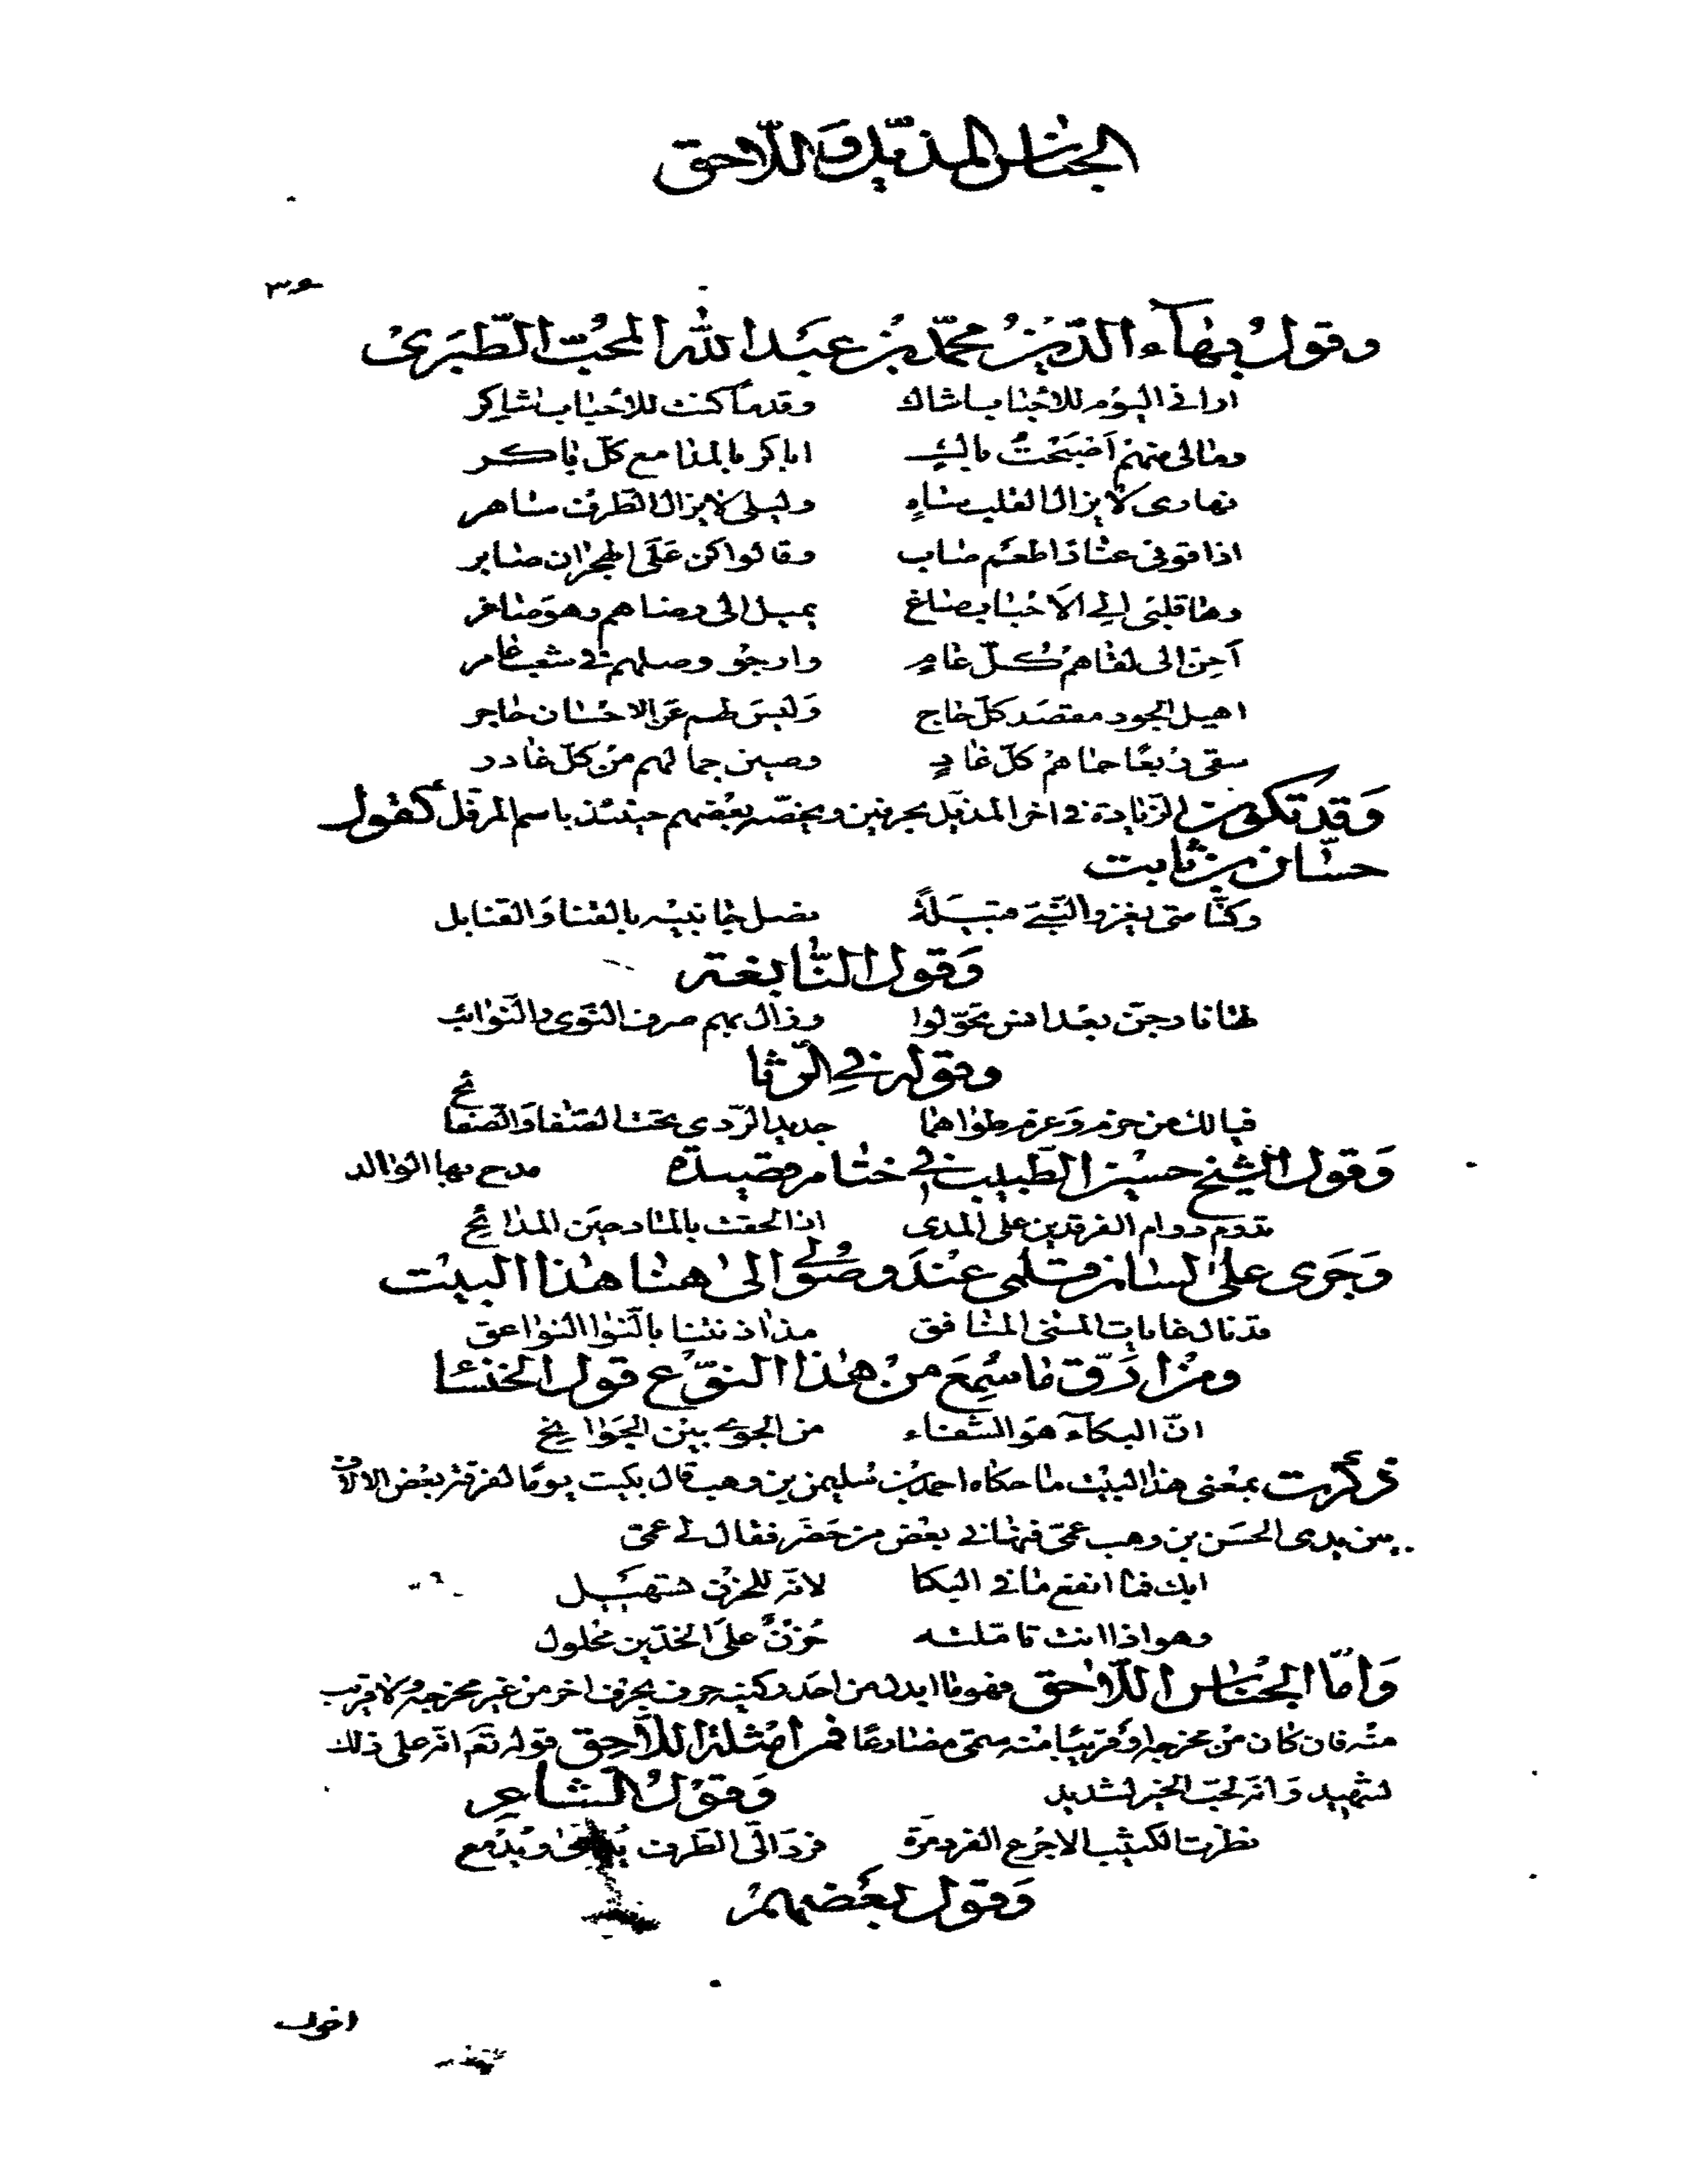 الجناس المذيّل واللّاحق
وقول بهآء الدّين محمّد بن عبد الله المحبّ الطّبري
اراني اليوم للاحباب شاك وقدما كنت للاحباب شاكر
ومالي منهم أصبحت باك اباكر بالمدامع كلّ باكر
نهاري لا يزال القلب ساهٍ وليلى لا يزال الطرف ساهر
اذاقوني عناذا طعم صاب وقالوا كن على الهجران صابر
وها قلبى الي الاحباب صاغ يميل الى رضاهم وهو صاغر
أحنّ الى لقاهم كلّ عامٍ وارجو وصلهم في شعب عامر
اهيل الجود مقصد كلّ حاج وليس لهم عن الاحسان حاجر
سقى ربعًا حماهم كلّ غادٍ وصين جمالهم من كلّ غادر
وقد تكون الزيادة في اخر المذيّل بحرفين ويخصّه بعضهم حينئذ باسم المرفّل كقول
حسّان بن ثابت
وكنّا متى يغزوا النّبيّ قبيلةً نصل جانبيه بالقنا والقنابل
وقول النّابغة
لها نار جنّ بعد انس تحوّلوا وزال بهم صرف النّوى والنّوائب
وقوله في الرّثا
فيالك من حزم وعزم طواهما جديد الرّدى تحت الصّفا والصّفائح
وقول الشيخ حسين الطّبيب في ختام قصيدة مدح بها الوالد
تدوم دوام الفرقدين على المدى اذا لحقت بالمادحين المدائح
وجرى على لسان قلمي عند وصولي الى هنا هذا البيت
قد نال غايات المنى المنافق مذ اذنتنا بالنّوا النواعق
ومن ارقّ ما سمع من هذا النوّع قول الخنسا
انّ البكآء هو الشّفاء من الجوى بين الجوانح
ذكرت بمعنى هذا البيت ما حكاه احمد بن سليمن بن وهب قال بكيت يومًا لفرقة بعض الالاف
بين يدى الحسن بن وهب عمّي فنهاني بعض من حضر فقال لي عمّى
ابك فما انفع ما في البكا لانّه للحزن تسهيل
وهو اذا انت تاملته حزنٌ على الخدّين محلول
وامّا الجناس اللّاحق فهو ما ابدل من احد ركنيه حرف بحرف اخر من غير مخرجه ولا قريب
منه فان كان من مخرجه او قريبًا منه سمّى مضارعًا فمن امثلة اللّاحق قوله تعم انّه على ذلك
لشهيد وانّه لحبّ الخير لشديد وقول الشّاعر
نظرت الكثيب الاجرع الفرد مرّة فردّ الّى الطّرف ويدمع
وقول بعضهم